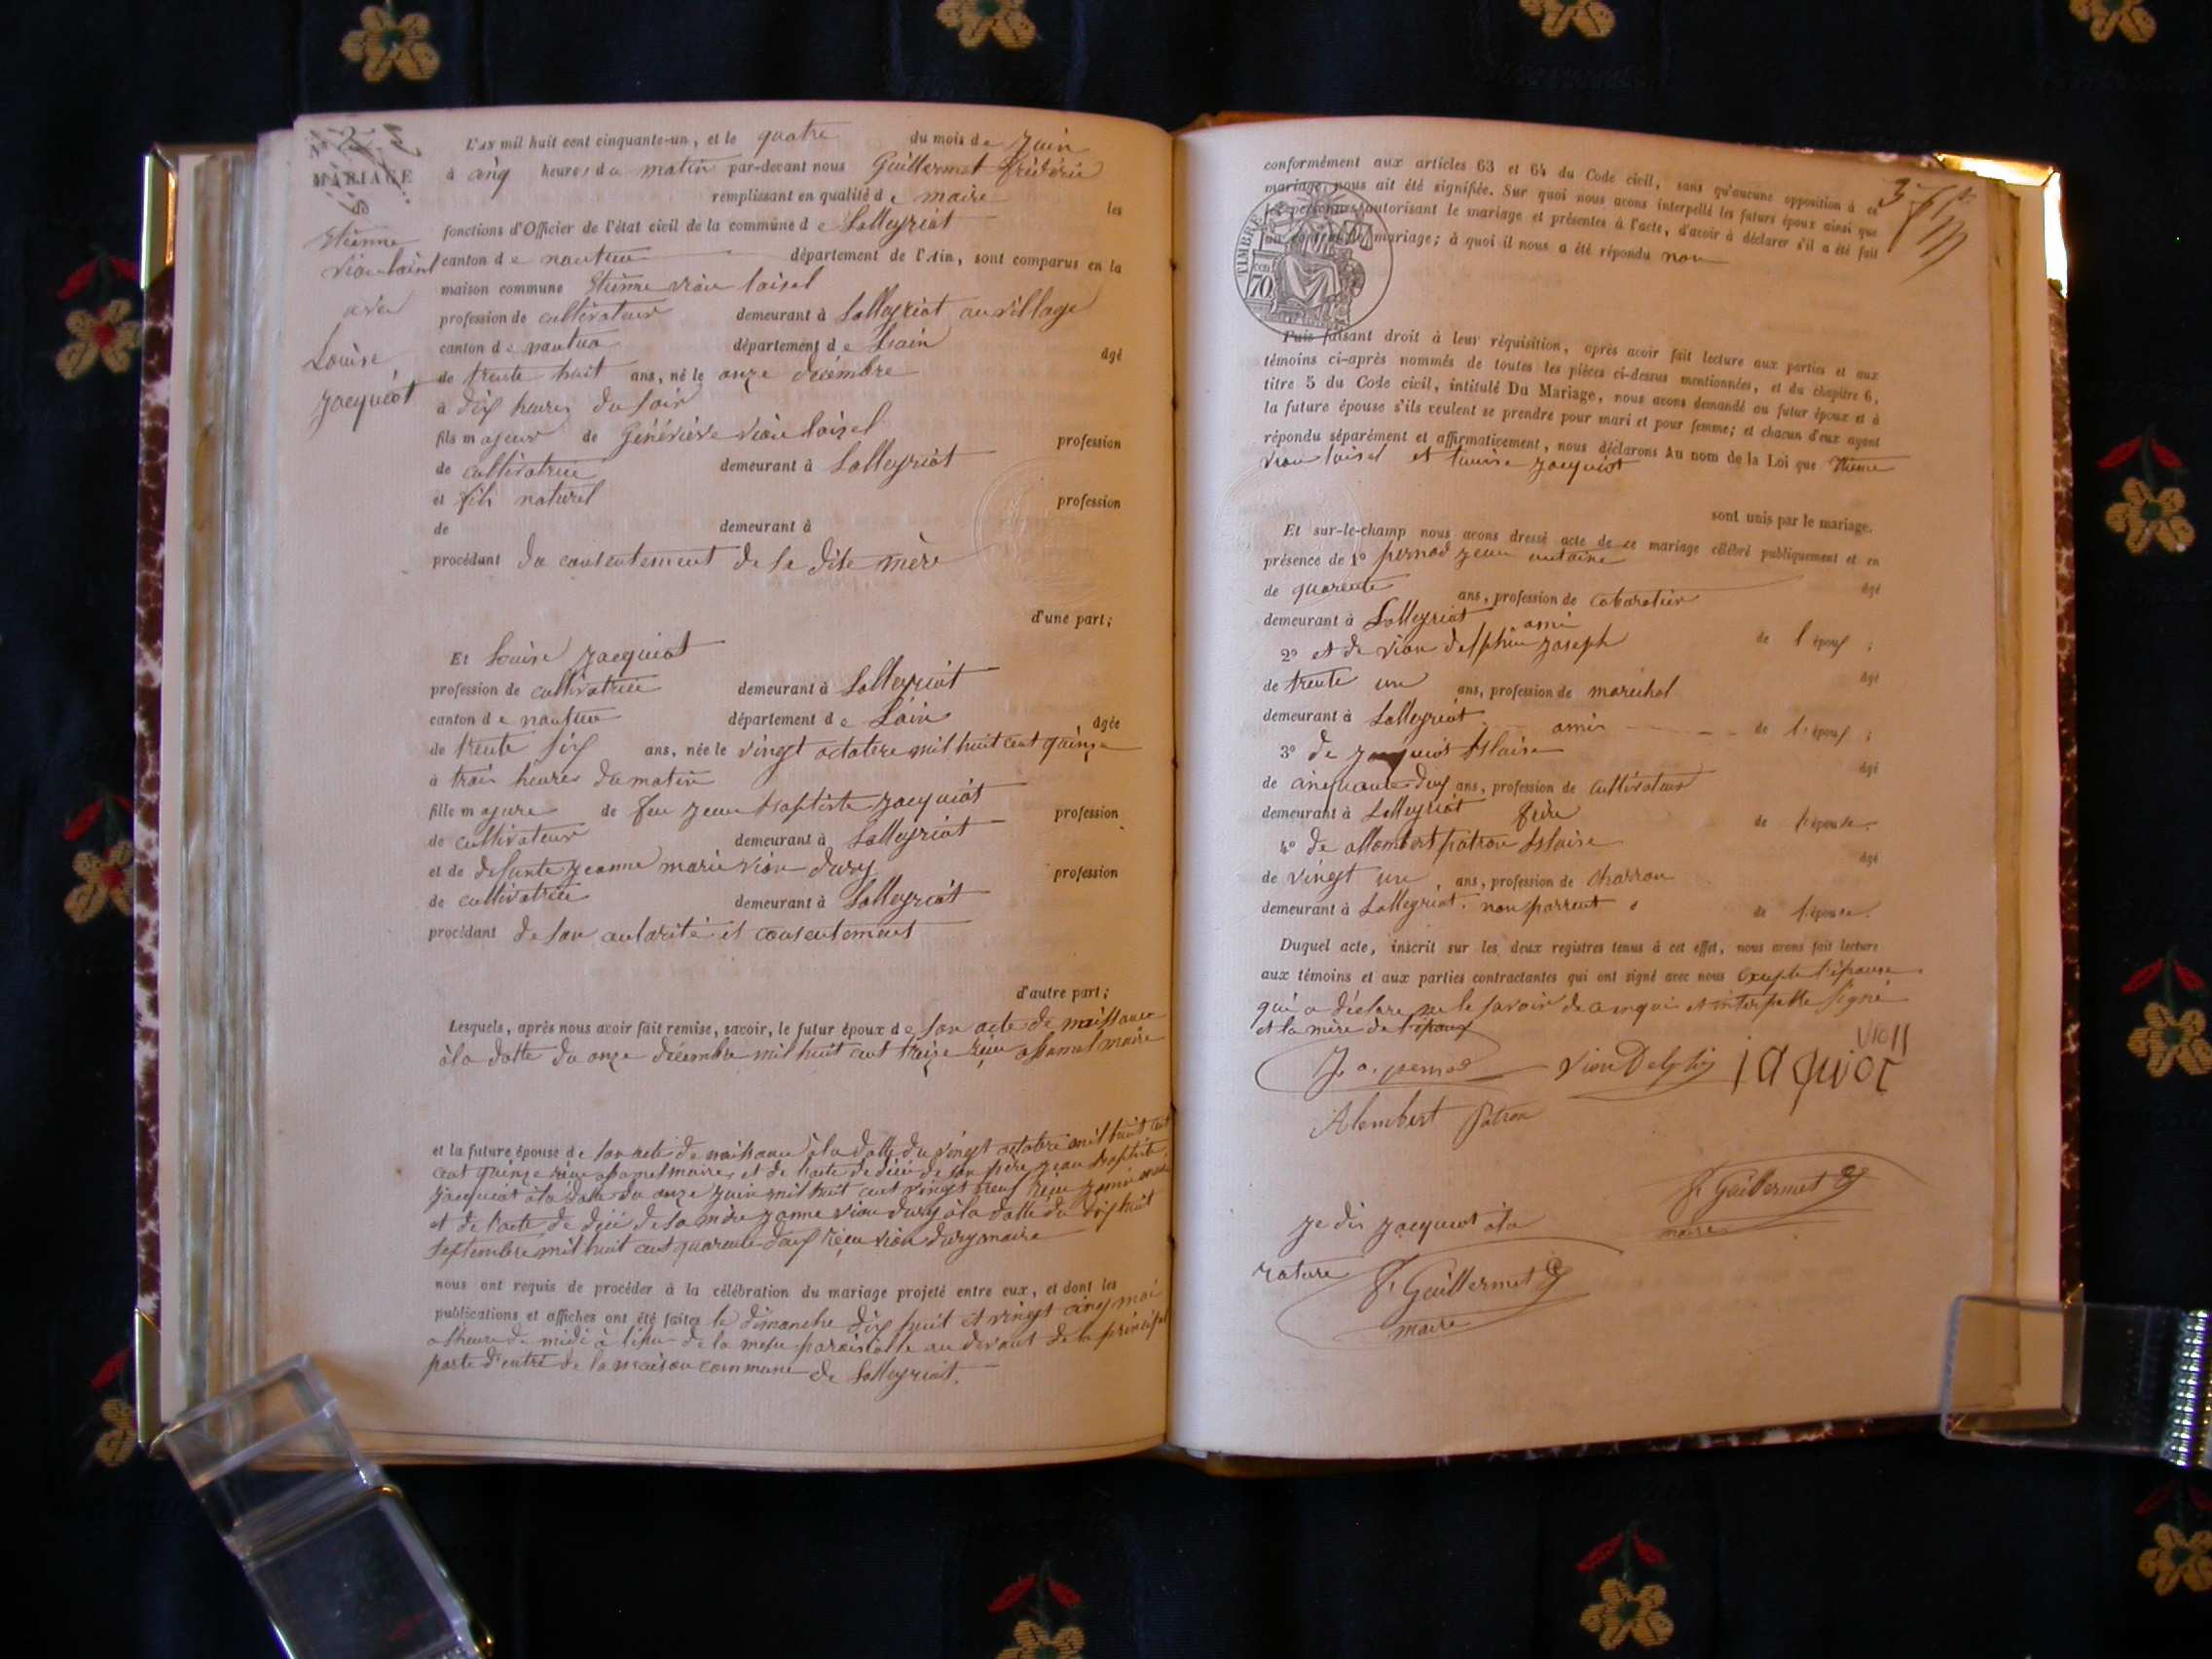 MARIAGE
de
Etienne
vion loisel
avec
Louise
jacquiot
L'AN mil huit cent cinquante-un, et le quatre du mois de juin
à cinq heures du matin par-devant nous Guillermet frédéric
remplissant en qualité de maire les
fonctions d'Officier de l'état civil de la commune de Lalleyriat
canton de nantua département de l'Ain, sont comparus en la
maison commune Etienne vion loisel
profession de cultivateur demeurant à Lalleyriat au village
canton de nantua département de Lain âgé
de trente huit ans, né le onze décembre
à dix heures du soir
fils majeur de Généviève vion loisel profession
de cultivatrice demeurant à Lalleyriat
et fils naturel profession
de demeurant à
procédant du consentement de sa dite mère
d'une part;
Et Louise jacquiot
profession de cultivatrice demeurant à Lalleyriat
canton de nantua département de Lain âgée
de trente six ans, née le vingt octobre mil huit cent quinze
à trois heures du matin
fille majure de feu jean baptiste jacquiot profession
de cultivateur demeurant à Lalleyriat
et de defunte jeanne marie vion dury profession
de cultivatrice demeurant à Lalleyriat
procédant de son autorité et consentement
d'autre part;
Lesquels, après nous avoir fait remise, savoir, le futur époux de son acte de naissance
à la datte du onze décembre mil huit cent treize réçu maire
et la future épouse de son acte de naissance à la datte du vingt octobre mil huit cent
cent quinze réçu maire, et de l'acte de décé de son père jean baptiste
jacquiot à la datte du onze juin mil huit cent vingt neuf réçu
et de l'acte de décé de sa mère janne vion dury à la datte du dix huit
septembre mil huit cent quarente deux réçu vion dury maire
nous ont requis de procéder à la célébration du mariage projeté entre eux, et dont les
publications et affiches ont été faites le dimanche dix huit et vingt cinq mai
a l'heure de midi à l'issu de la messe paroissialle au devant de la principal
porte d'entré de la maison commune de Lalleyriat.
conformément aux articles 63 et 64 du Code civil, sans qu'aucune opposition à ce
mariage nous ait été signifiée. Sur quoi nous avons interpellé les futurs époux ainsi que
les personnes autorisant le mariage et présentes à l'acte, d'avoir à déclarer s'il a été fait
un contrat de mariage; à quoi il nous a été répondu non
TIMBRE
70
Puis faisant droit à leur réquisition, après avoir fait lecture aux parties et aux
témoins ci-après nommés de toutes les pièces ci-dessus mentionnées, et du chapitre 6,
titre 5 du Code civil, intitulé Du Mariage, nous avons demandé au futur époux et à
la future épouse s'ils veulent se prendre pour mari et pour femme; et chacun d'eux ayant
répondu séparément et affirmativement, nous déclarons Au nom de la Loi que Etienne
vion loisel et louise jacquiot
sont unis par le mariage.
Et sur-le-champ nous avons dressé acte de ce mariage célébré publiquement et en
présence de 1° pernod jean antoine âgé
de quarente ans, profession de cabaretier
demeurant à Lalleyriat ami de l'époux;
2° et de vion delphin joseph âgé
de trente un ans, profession de marechal
demeurant à Lalleyriat amis de l'époux;
3° de jacquiot blaise âgé
de cinquante deux ans, profession de cultivateur
demeurant à Lalleyriat frère de l'épouse.
4° de allombert patron blaise âgé
de vingt un ans, profession de charron
demeurant à Lalleyriat. non parrent de l'épouse.
Duquel acte, inscrit sur les deux registres tenus à cet effet, nous avons fait lecture
aux témoins et aux parties contractantes qui ont signé avec nous excepte l'épouse
qui a déclare ne le savoir de ce enqui et interpelle signé
et la mère de l'époux
J. a. pernod vion Delphin jaquiot
VIOU
Alembert Patron
F. Guillermet
maire
je dis jacquiot à la
rature F. Guillermet
maire